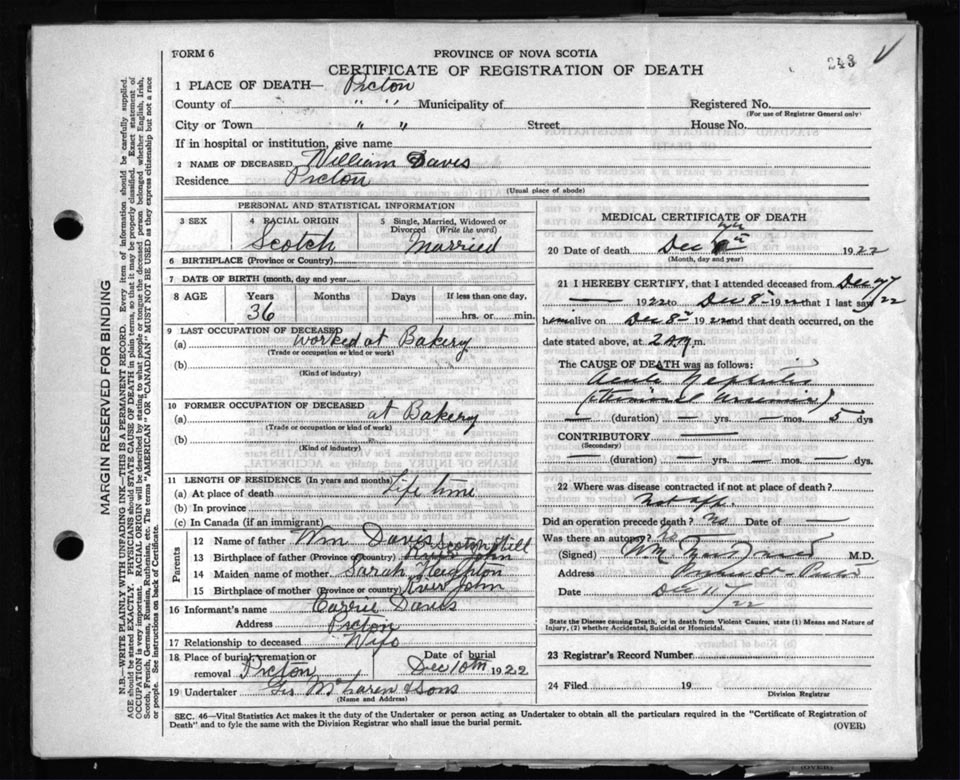 FORM 6
PROVINCE OF NOVA SCOTIA
CERTIFICATE OF REGISTRATION OF DEATH
243
1 PLACE OF DEATH— Picton
County of " " Municipality of Registered No.
(For use of Registrar General only)
City or Town " " Street House No.
If in hospital or institution, give name
2 NAME OF DECEASED William Davis
Residence Picton
(Usual place of abode)
PERSONAL AND STATISTICAL INFORMATION
3 SEX 4 RACIAL ORIGIN 5 Single, Married, Widowed or Divorced (Write the word)
Scotch Married
6 BIRTHPLACE (Province or Country)
7 DATE OF BIRTH (month, day and year)
8 AGE Years Months Days If less than one day,
36 hrs. or min.
9 LAST OCCUPATION OF DECEASED
(a) Worked at Bakery
(Trade or occupation or kind or work)
(b)
(Kind of industry)
10 FORMER OCCUPATION OF DECEASED
(a) at Bakery
(Trade or occupation or kind of work)
(b)
(Kind of industry)
11 LENGTH OF RESIDENCE (In years and months)
(a) At place of death Life time
(b) In province
(c) In Canada (if an immigrant)
Parents
12 Name of father Wm Davis
13 Birthplace of father (Province or Country) Scotch Hill
14 Maiden name of mother Sarah Heighton
15 Birthplace of mother (Province or country) River John
16 Informant's name Carrie Davis
Address Picton
17 Relationship to deceased Wife
18 Place of burial, cremation or removal Picton Date of burial Dec 10th 1922
19 Undertaker Geo McLaren & Sons
(Name and Address)
MEDICAL CERTIFICATE OF DEATH
20 Date of death Dec 1922
(Month, day and year)
21 I HEREBY CERTIFY, that I attended deceased from Dec 4/22
— 1922 to Dec 8th 1922 that I last saw
him alive on Dec 8th 1922 and that death occurred, on
date stated above, at 2 m.
The CAUSE OF DEATH was as follows:
Acute Nephritis
(Uraemia)
(duration) — yrs. — mos. 5 dys
CONTRIBUTORY —
(Secondary)
— (duration) — yrs. — mos. — dys.
22 Where was disease contracted if not at place of death?
Not app.
Did an operation precede death? No Date of —
Was there an autopsy? No
(Signed) Wm M.D.
Address
Date Dec 11/22
State the Disease causing Death, or in death from Violent Causes, state (1) Means and Nature of Injury, (2) whether Accidental, Suicidal or Homicidal.
23 Registrar's Record Number
24 Filed 19
Division Registrar
SEC. 46—Vital Statistics Act makes it the duty of the Undertaker or person acting as Undertaker to obtain all the particulars required in the "Certificate of Registration of
Death" and to file the same with the Division Registrar who shall issue the burial permit.
(OVER)
(OVER)
MARGIN RESERVED FOR BINDING
N.B.—WRITE PLAINLY WITH UNFADING INK—THIS IS A PERMANENT RECORD. Every item of information should be carefully supplied.
AGE should be stated EXACTLY. PHYSICIANS should STATE CAUSE OF DEATH in plain terms, so that it may be properly classified. Exact statement of
OCCUPATION is very important. RACIAL ORIGIN will be described by stating to what people or tongue the deceased person belonged whether English, Irish,
Scotch, French, German, Russian, Ruthenian, etc. The terms "AMERICAN" OR "CANADIAN" MUST NOT BE USED as they express citizenship but not a race
or people. See instructions on back of Certificate.